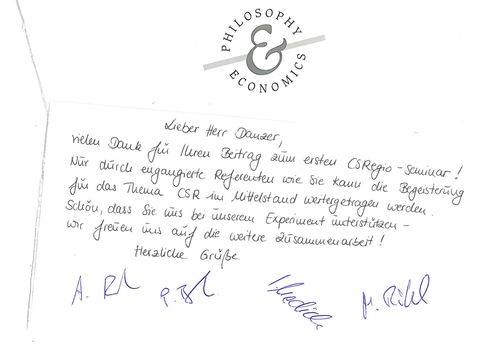 PHILOSOPHY
&
ECONOMICS
Lieber Herr Danzer,
vielen Dank für Ihren Beitrag zum ersten CSRegio-Seminar!
Nur durch engangierte Referenten wie Sie kann die Begeisterung
für das Thema CSR im Mittelstand weitergetragen werden.
Schön, dass Sie uns bei unserem Experiment unterstützen -
wir freuen uns auf die weitere Zusammenarbeit!
Herzliche Grüße
A.